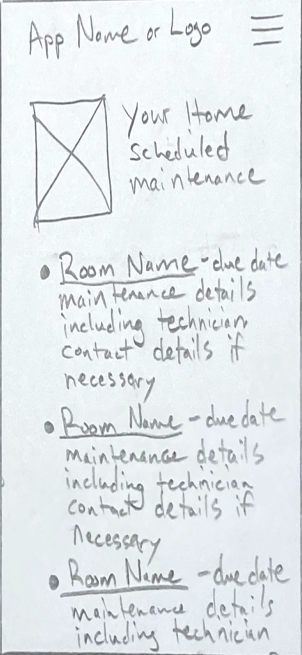 App Name or Logo
Your Home
scheduled
maintenance
• Room Name - due date
maintenance details
including technician
contact details if
necessary
• Room Name - due date
maintenance details
including technician
contact details if
necessary
• Room Name - due date
maintenance details
including technician